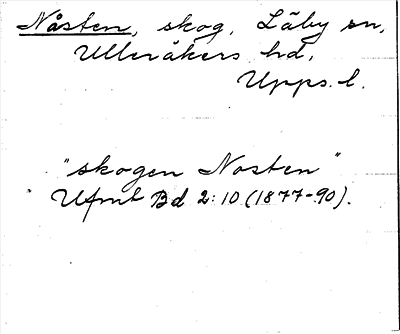 Nåsten, skog, Läby sn,
Ulleråkers hd,
Upps. l.
"skogen Nosten"
Ufmt Bd 2:10 (1877-90).